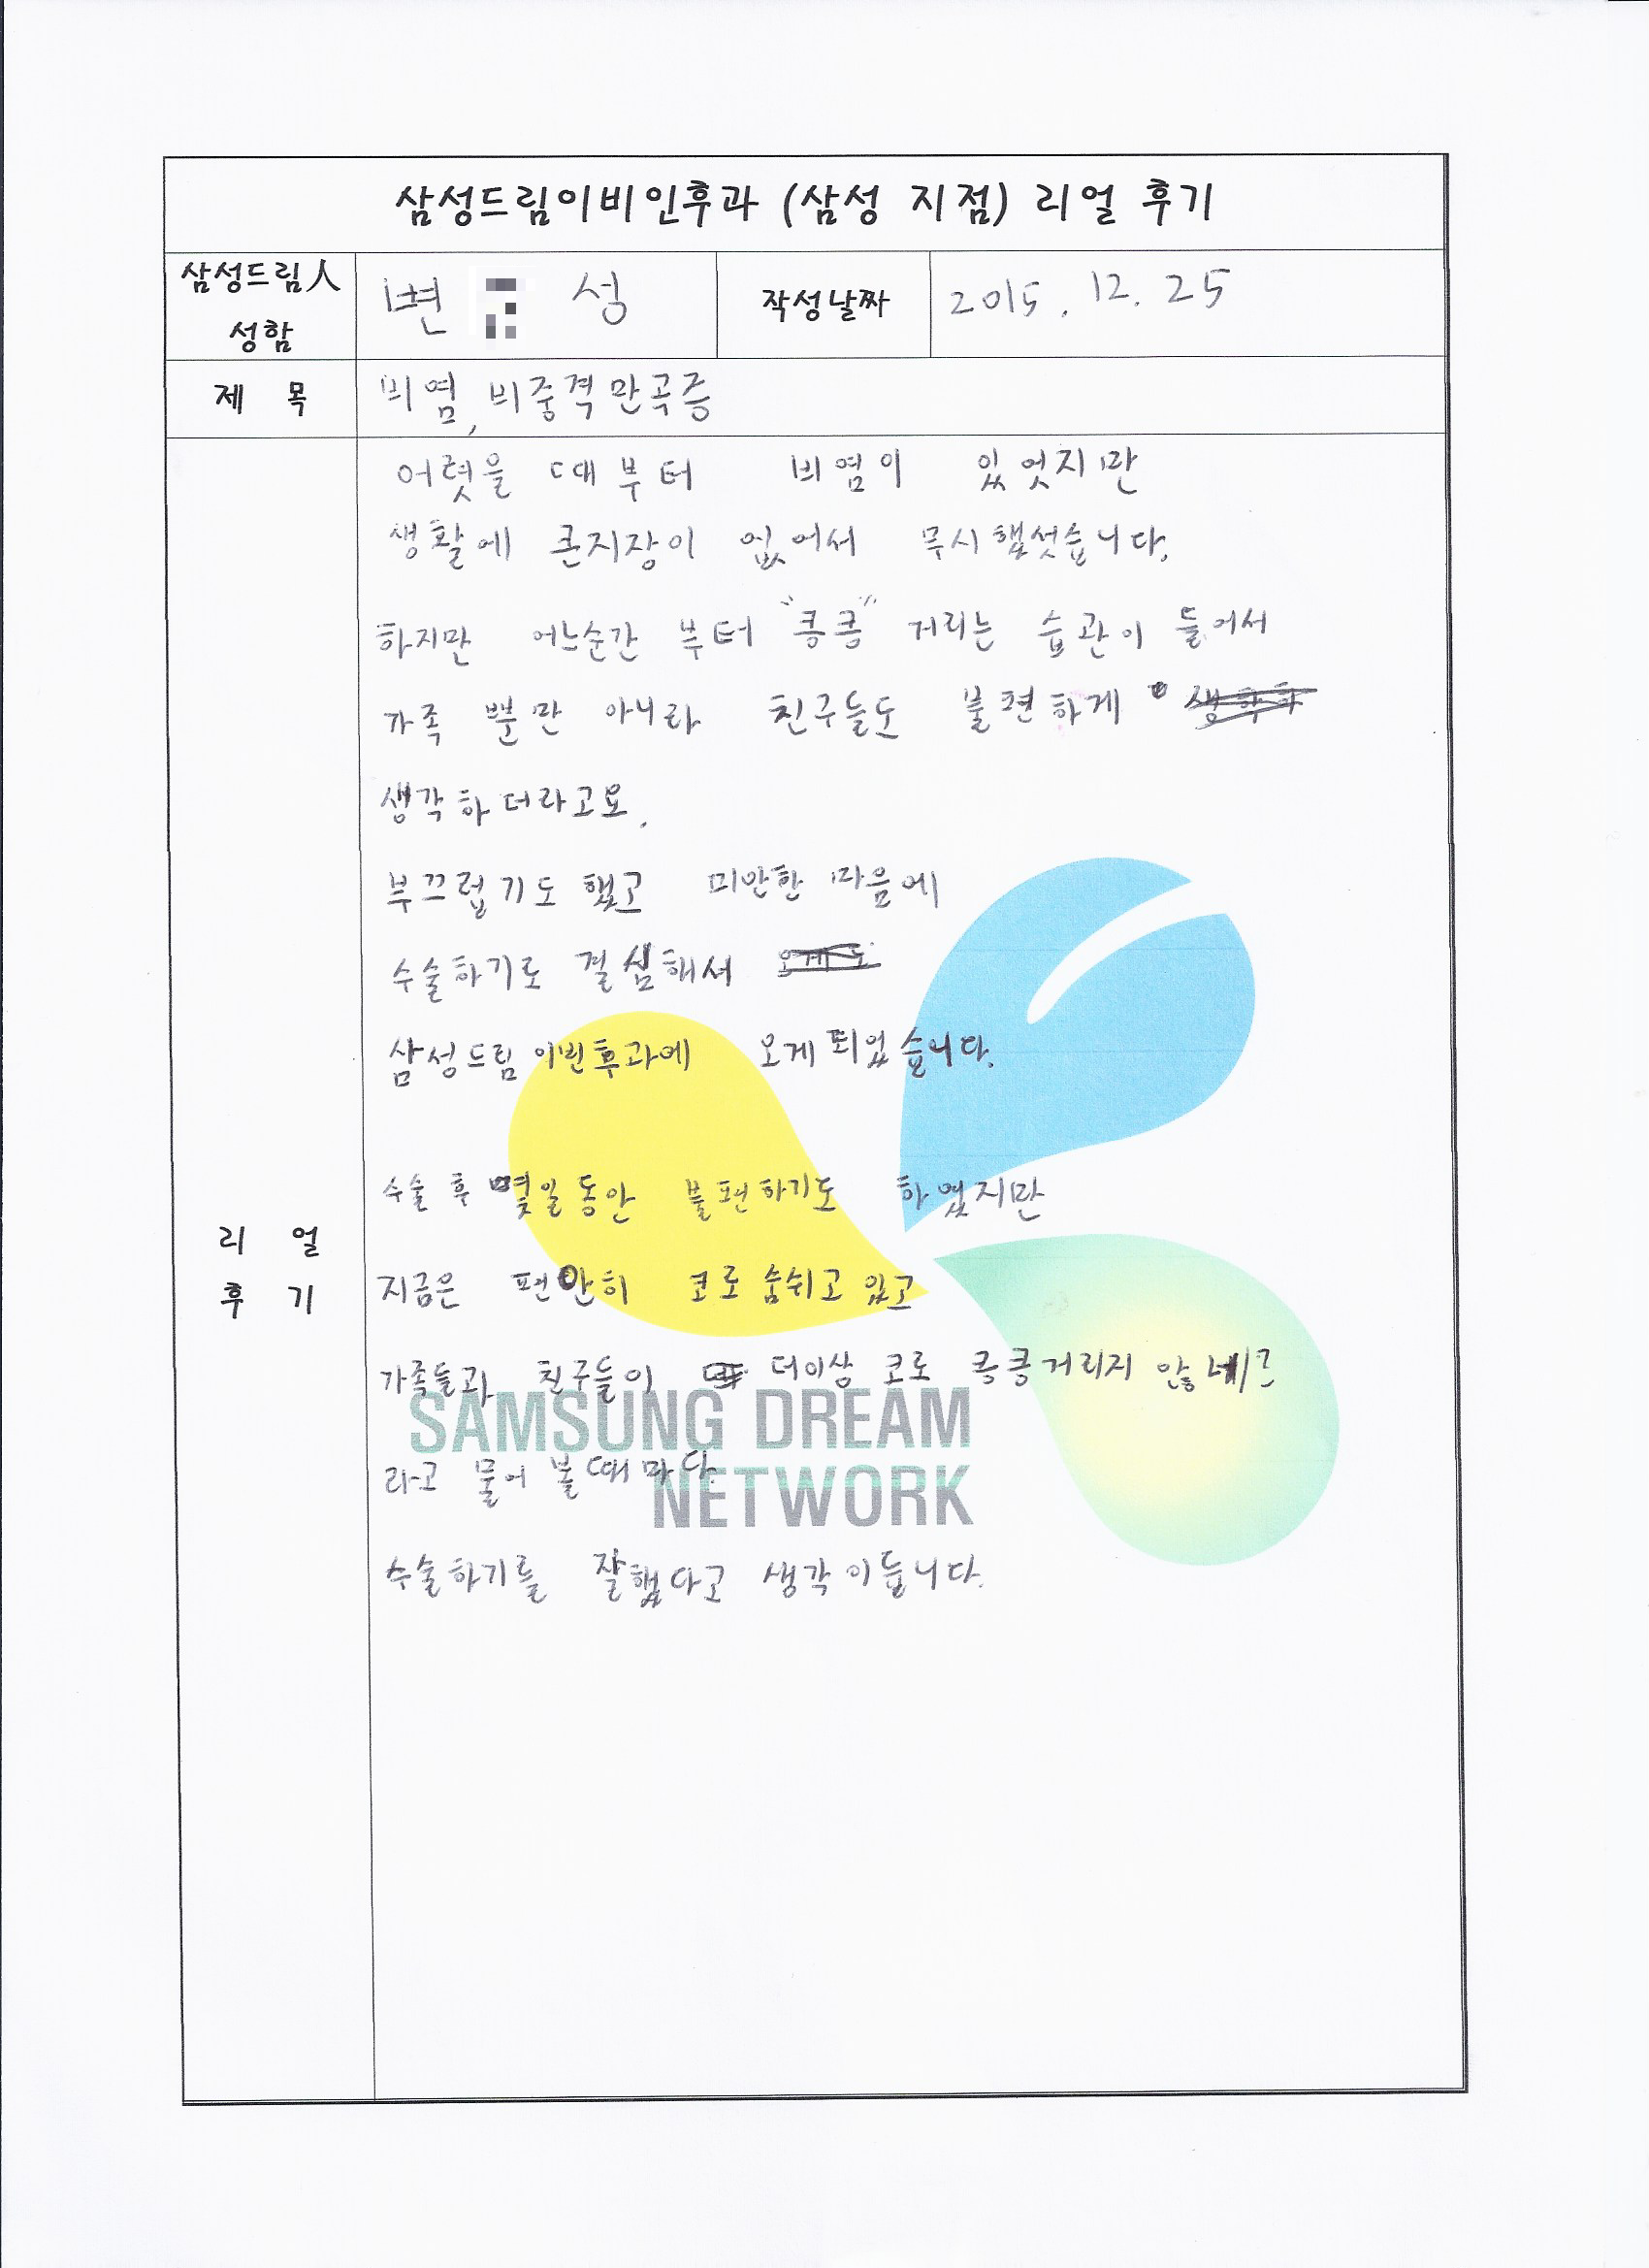 삼성드림이비인후과 (삼성 지점) 리얼 후기
삼성드림人 성함
변 성
작성날짜
2015. 12. 25
제 목
비염, 비중격만곡증
리 얼 후 기
어렷을 때부터 비염이 있엇지만
생활에 큰지장이 없어서 무시했섯습니다.
하지만 어느순간 부터 "킁킁" 거리는 습관이 들어서
가족 뿐만 아니라 친구들도 불편하게
생각하더라고요.
부끄럽기도 했고 미안한 마음에
수술하기로 결심해서
삼성드림 이빈후과에 오게 되었습니다.
수술 후 몇일동안 불편하기도 하였지만
지금은 편안히 코로 숨쉬고 있고
가족들과 친구들이 더이상 코로 킁킁거리지 않네?
라고 물어 볼때 마다
SAMSUNG DREAM
NETWORK
수술하기를 잘했다고 생각이듭니다.